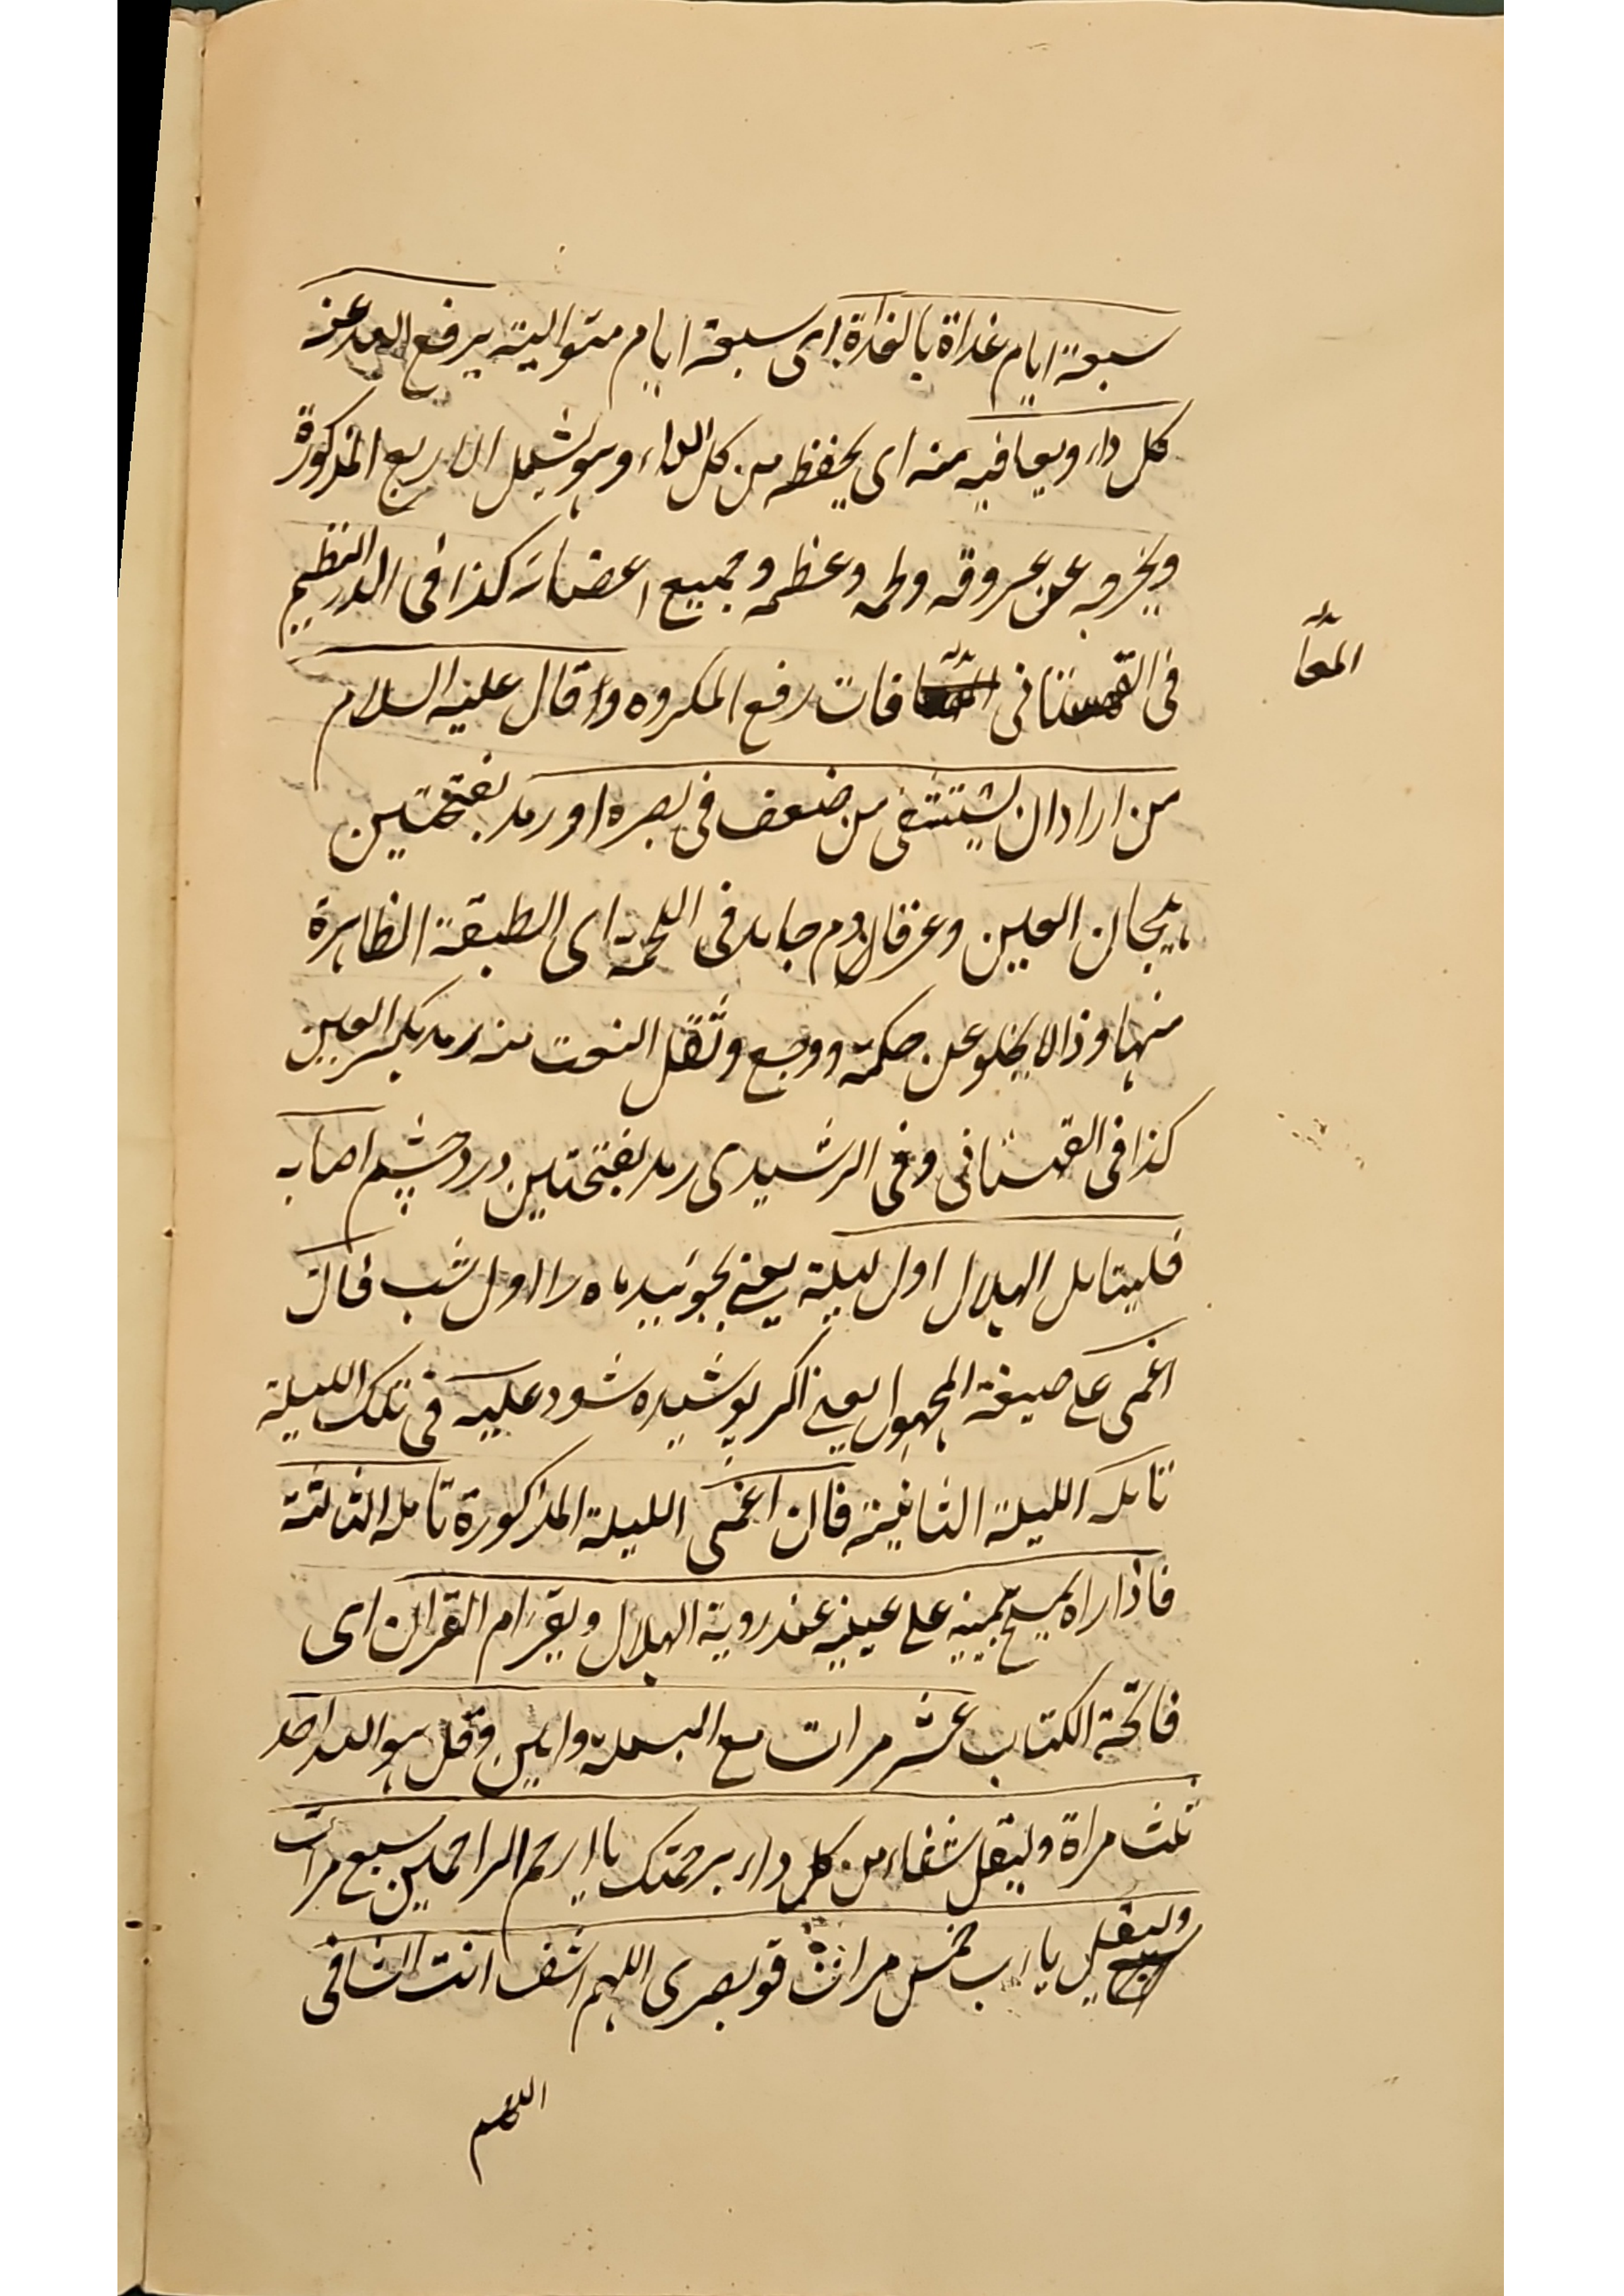 سبعة ايام غداة بالغداة اى سبعة ايام متوالية يرفع الله عنه
كل داء ويعافيه منه اى يحفظه من كل الداء وهو يشمل الاربع المذكورة
ويخرجه عن عروقه ولحمه وعظمه وجميع اعضائه كذا فى الدر النظيم
فى القهستانى فات رفع المكروه وقال عليه السلام
المعا
من اراد ان يشتفى من ضعف فى بصره او رمد بفتحتين
هيجان العين وعرفا ورم حار فى اللحمة اى الطبقة الظاهرة
منها وذا لا يخلو عن حكة ووجع وثقل النعت منه رمد بكسر العين
كذا فى القهستانى وفى الرشيدى رمد بفتحتين درد چشم اصابه
فليتامل الهلال اول ليلة يعنى بجوئيد ماه را اول شب فان
اغمى على صيغة المجهول يعنى اگر پوشيده شود عليه فى تلك الليلة
تامله الليلة الثانية فان اغمى الليلة المذكورة تامله الثالثة
فاذا راه يمسح يمينه على عينيه عند روية الهلال ويقرء ام القران اى
فاتحة الكتاب عشر مرات مع البسملة وامين وقل هو الله احد
ثلث مراة وليقل شفاء من كل داء برحمتك يا ارحم الراحمين سبع مرات
وليقل يا رب خمس مرات قو بصرى اللهم اشف انت الشافى
اللهم